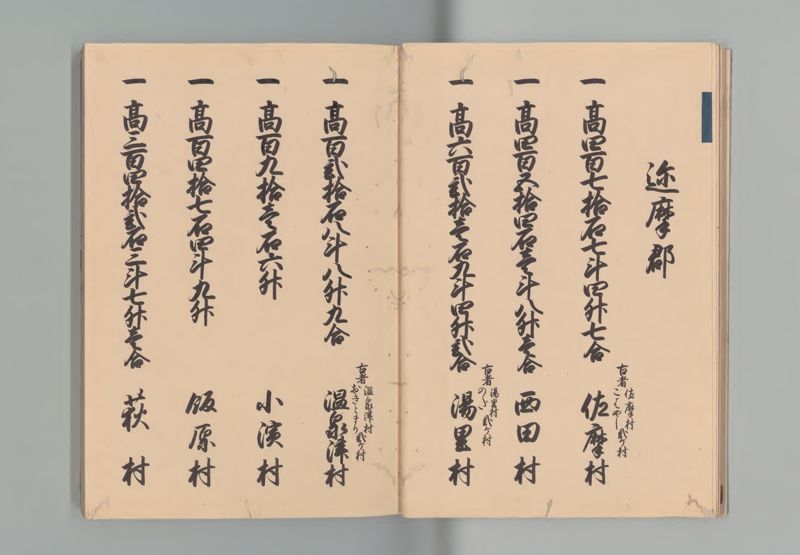 迩摩郡
一 高四百七拾石七斗四升七合
古者佐摩村
こはやし弐ヶ村
佐摩村
一 高四百五拾四石壱斗八升壱合 西田村
一 高六百弐拾壱石九斗四升弐合
古者湯里村
弐ヶ村
湯里村
一 高百弐拾石八斗八升九合
古者温泉津村
弐ヶ村
温泉津村
一 高百九拾壱石六升 小濱村
一 高百四拾七石四斗九升 飯原村
一 高三百四拾弐石三斗七升壱合 萩村